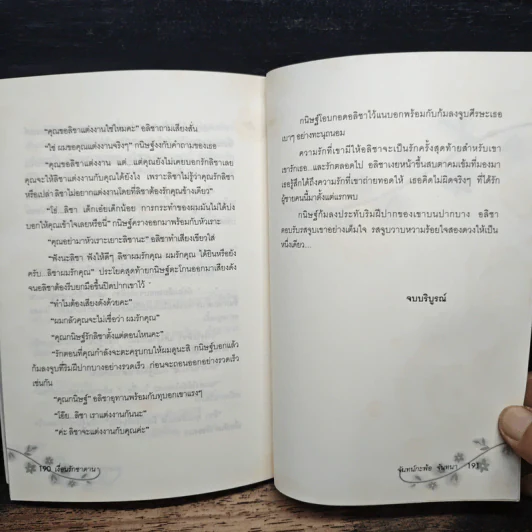 "คุณขอลิชาแต่งงานใช่ไหมคะ" อลิชาถามเสียงสั่น
"ใช่ ผมขอคุณแต่งงานจริงๆ" กนิษฐ์งงกับคำถามของเธอ
"คุณขอลิชาแต่งงาน แต่...แต่คุณยังไม่เคยบอกรักลิชาเลย
คุณจะให้ลิชาแต่งงานกับคุณได้ยังไง เพราะลิชาไม่รู้ว่าคุณรักลิชา
หรือเปล่า ลิชาไม่อยากแต่งงานโดยที่ลิชาต้องรักคุณข้างเดียว"
"โธ่...ลิชา เด็กเอ๋ยเด็กน้อย การกระทำของผมมันไม่ได้บ่ง
บอกให้คุณเข้าใจเลยหรือนี่" กนิษฐ์ครางออกมาพร้อมกับหัวเราะ
"คุณอย่ามาหัวเราะเยาะลิชานะ" อลิชาทำเสียงเขียวใส่
"ฟังนะลิชา ฟังให้ดีๆ ลิชาผมรักคุณ ผมรักคุณ ได้ยินหรือยัง
ครับ...ลิชาผมรักคุณ" ประโยคสุดท้ายกนิษฐ์ตะโกนออกมาเสียงดัง
จนอลิชาต้องรีบยกมือขึ้นปิดปากเขาไว้
"ทำไมต้องเสียงดังด้วยคะ"
"ผมกลัวคุณจะไม่เชื่อว่า ผมรักคุณ"
"คุณกนิษฐ์รักลิชาตั้งแต่ตอนไหนคะ"
"รักตอนที่คุณกำลังจะตะครุบกบให้ผมดูนะสิ กนิษฐ์บอกแล้ว
ก้มลงจูบที่ริมฝีปากบางอย่างรวดเร็ว ก่อนจะถอนออกอย่างรวดเร็ว
เช่นกัน
"คุณกนิษฐ์" อลิชาอุทานพร้อมกับทุบอกเขาแรงๆ
"โอ๊ย...ลิชา เราแต่งงานกันนะ"
"ค่ะ ลิชาจะแต่งงานกับคุณค่ะ"
190 เรือนรักชาดาน
กนิษฐ์โอบกอดอลิชาไว้แนบอกพร้อมกับก้มลงจูบศีรษะเธอ
เบาๆ อย่างทะนุถนอม
ความรักที่เขามีให้อลิชาจะเป็นรักครั้งสุดท้ายสำหรับเขา
เขารักเธอ...และรักตลอดไป อลิชาเงยหน้าขึ้นสบตาคมเข้มที่มองมา
เธอรู้สึกได้ถึงความรักที่เขาถ่ายทอดให้ เธอคิดไม่ผิดจริงๆ ที่ได้รัก
ผู้ชายคนนี้มาตั้งแต่แรกพบ
กนิษฐ์ก้มลงประทับริมฝีปากของเขาบนปากบาง อลิชา
ตอบรับรสจูบเขาอย่างเต็มใจ รสจูบวาบหวามร้อยใจสองดวงให้เป็น
หนึ่งเดียว...
จบบริบูรณ์
จันทน์กะพ้อ จันทนา 191